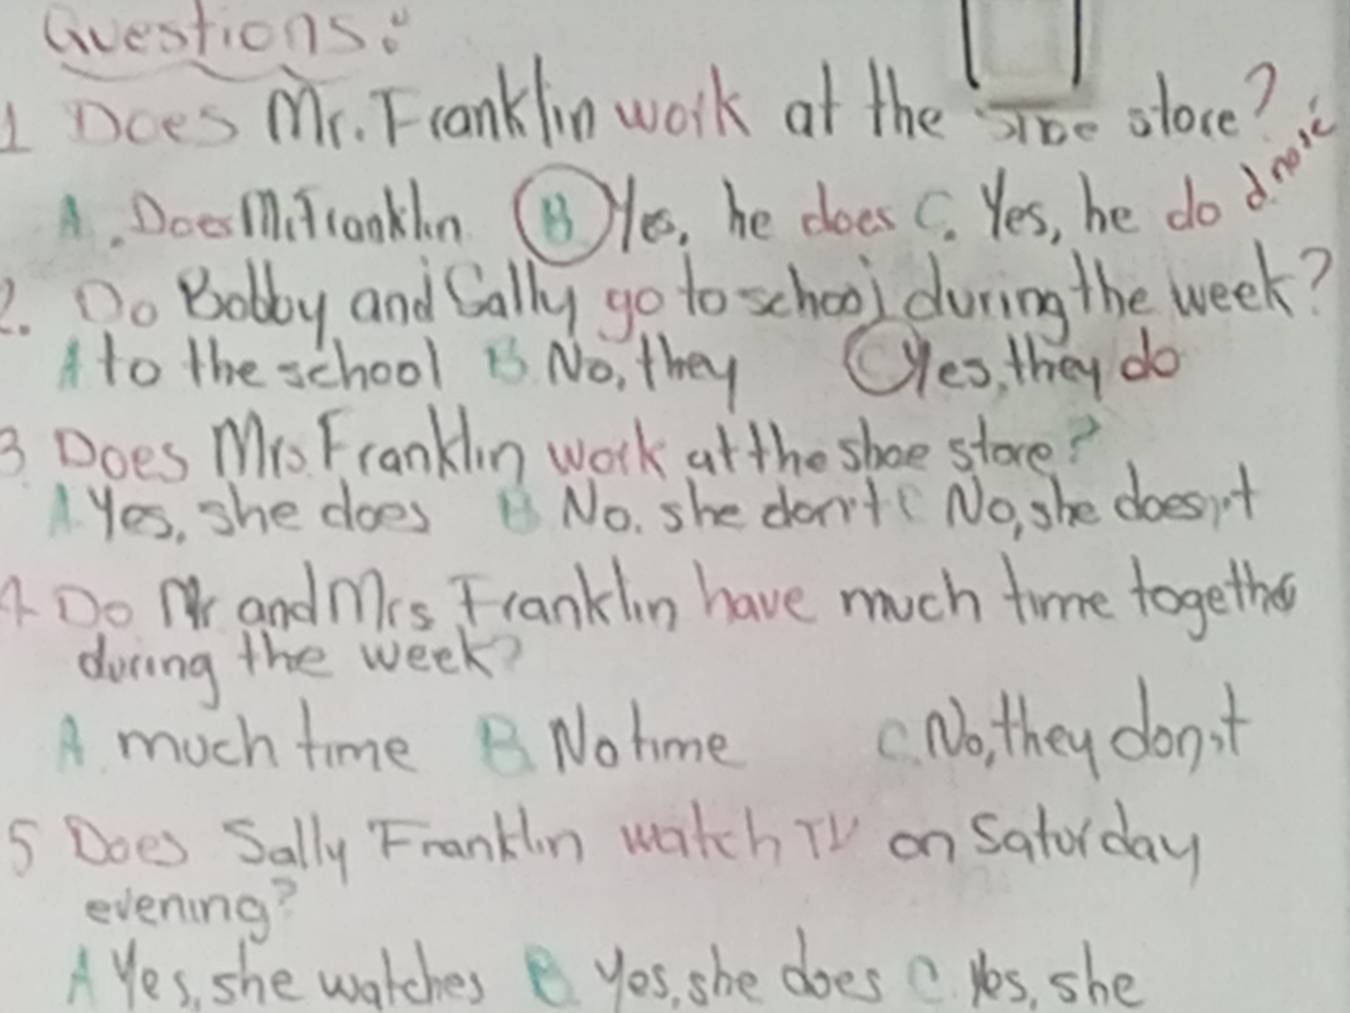 Questions:
1 Does Mr. Franklin work at the shoe store?
A. Does Mr Franklin B Yes, he does C. Yes, he do d. none
2. Do Bobby and Sally go to school during the week?
A to the school B. No, they C Yes, they do
3 Does Mrs. Franklin work at the shoe store?
A. Yes, she does B No. she don't C No, she doesn't
4 Do Mr and Mrs Franklin have much time together
during the week?
A. much time B. No time C. No, they don't
5 Does Sally Franklin watch TV on Saturday
evening?
A Yes, she watches B. Yes, she does C. Yes, she